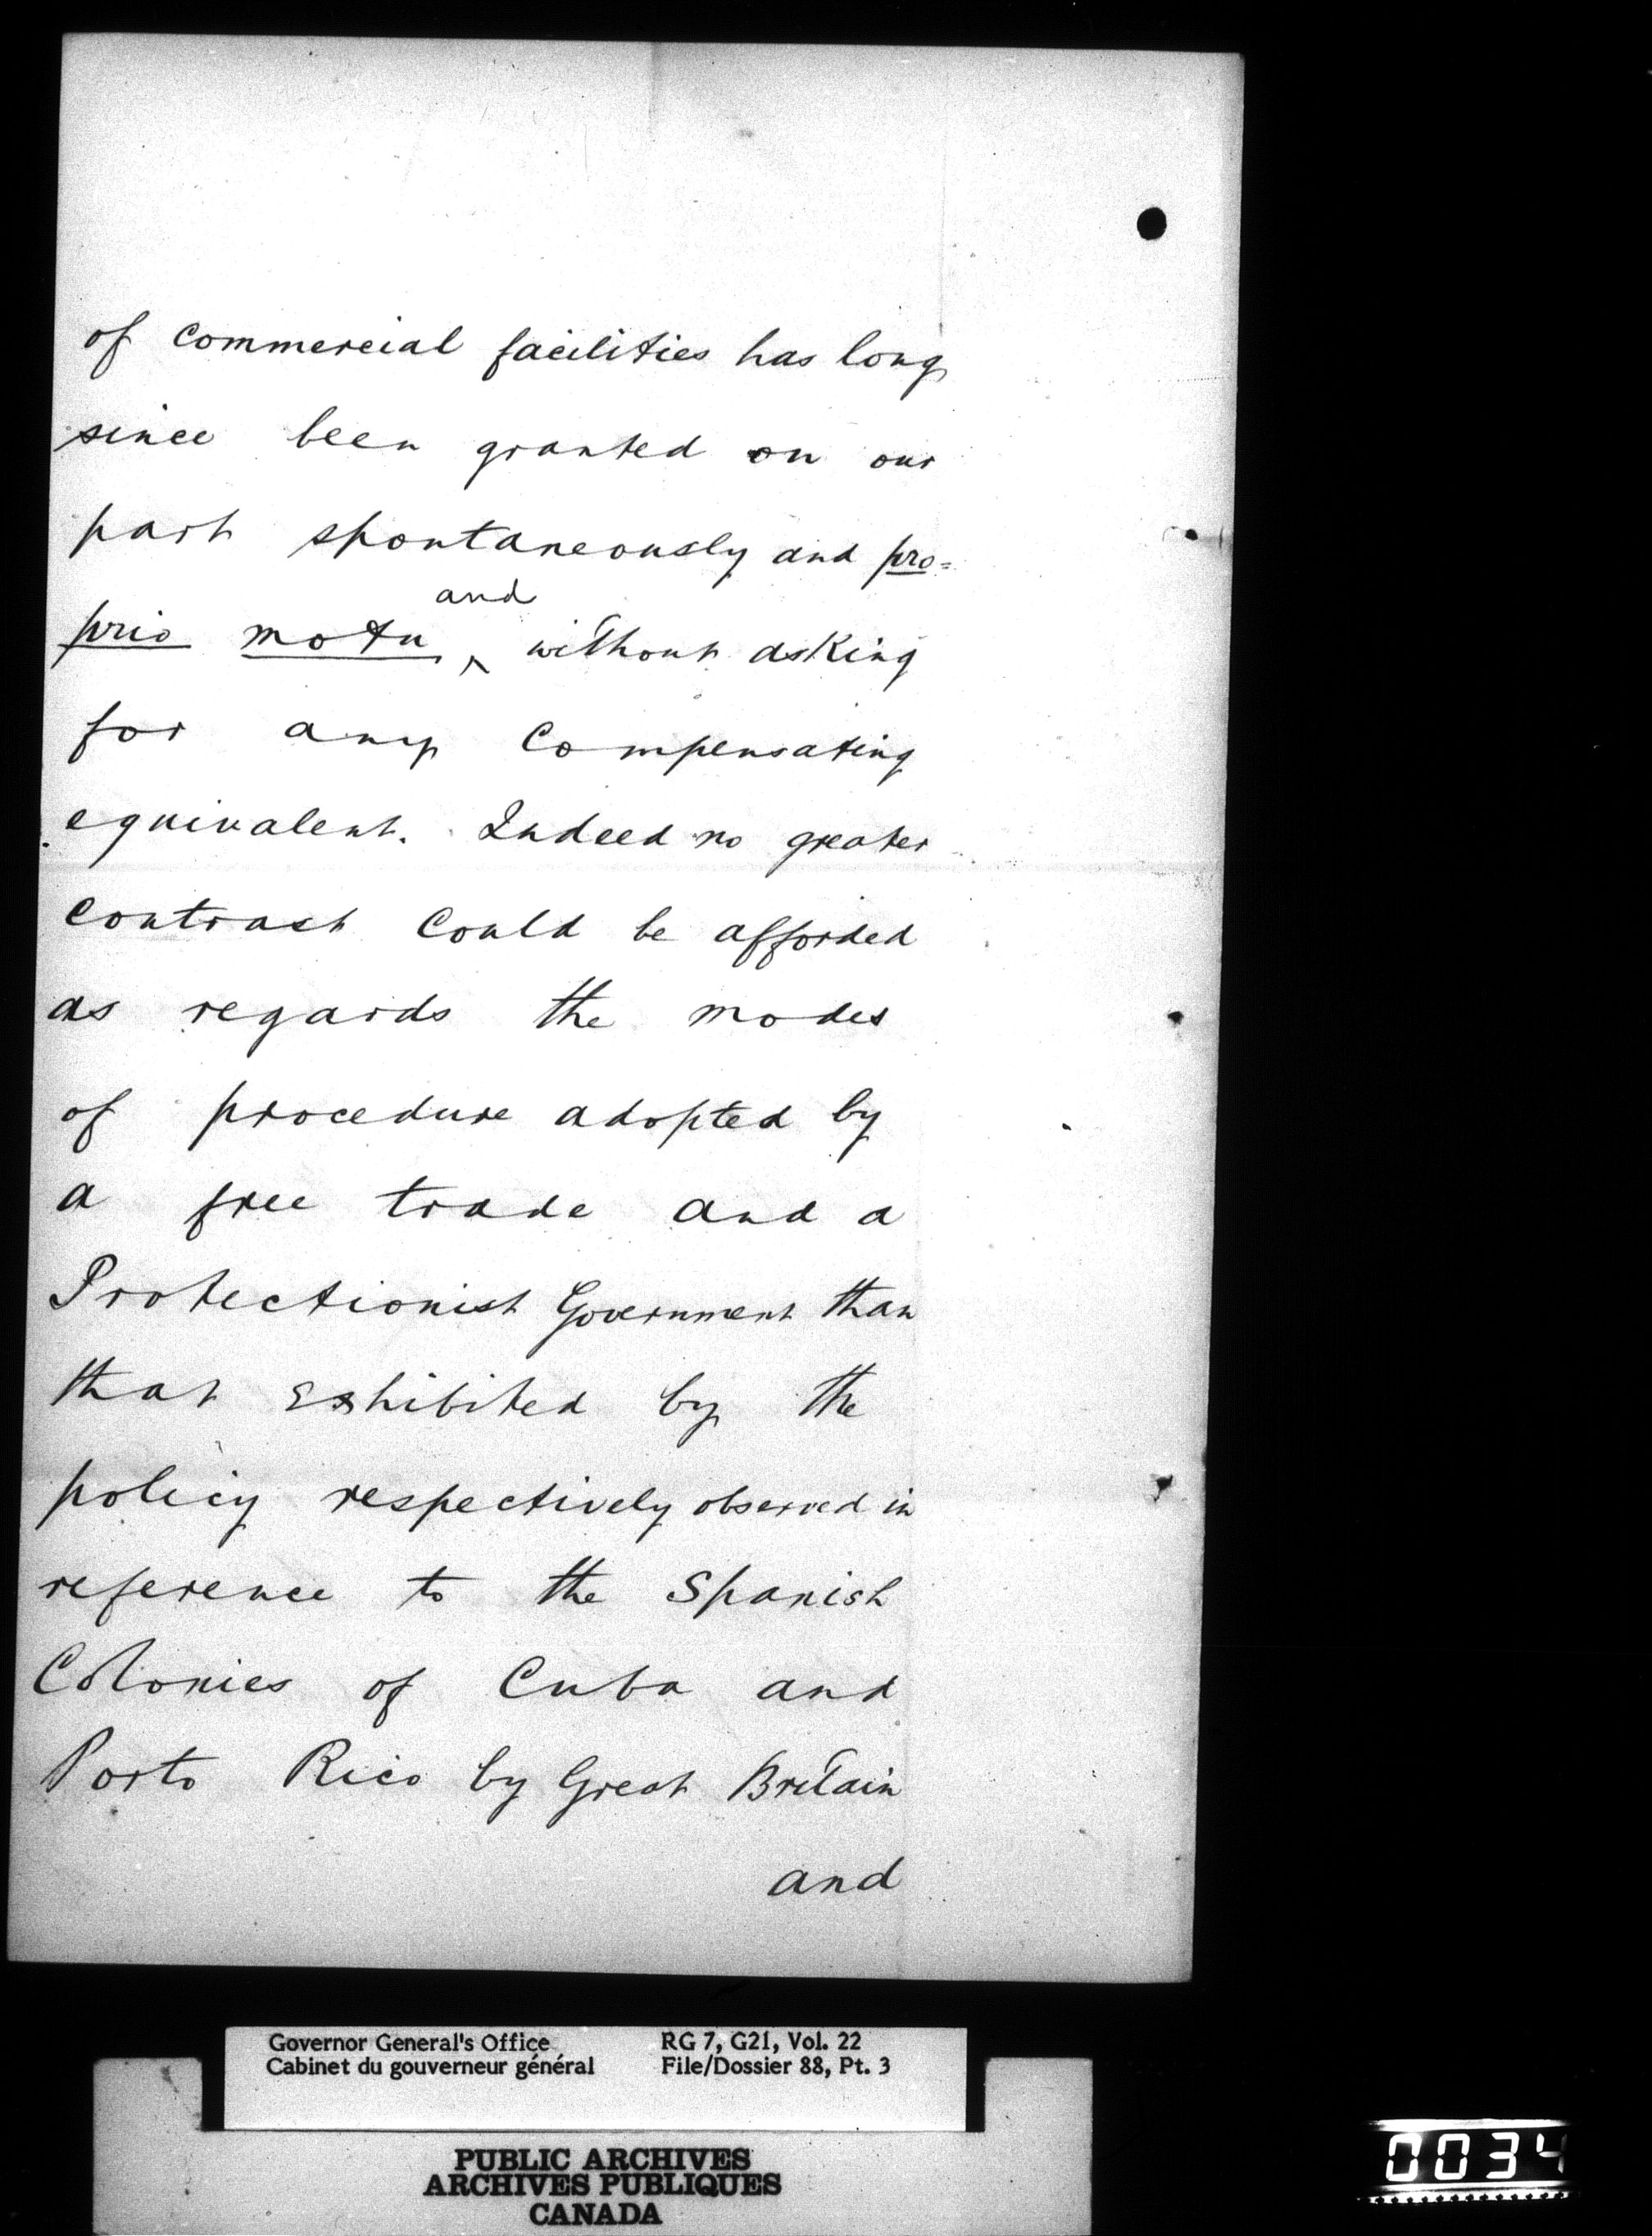 of commercial facilities has long
since been granted on our
part spontaneously and pro=
and
prio motu, ^ without asking
for any compensating
equivalent. Indeed no greater
contrast could be afforded
as regards the modes
of procedure adopted by
a free trade and a
Protectionist Government than
that exhibited by the
policy respectively observed in
reference to the Spanish
Colonies of Cuba and
Porto Rico by Great Britain
and
Governor General's Office RG 7, G21, Vol. 22
Cabinet du gouverneur général File/Dossier 88, Pt. 3
PUBLIC ARCHIVES
ARCHIVES PUBLIQUES
CANADA
0034